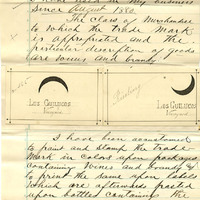 since August 1880.
The class of Merchandise
to which the Trade Mark
is appropriated and the
particular description of goods
are Wines and brandy
Les Guildons
Vineyard
Les Guildons
Vineyard
I have been accustomed
to print and stamp the Trade-
Mark in colors upon packages
containing Wines and brandy &
to print the same upon labels
which are afterwards pasted
upon bottles containing the